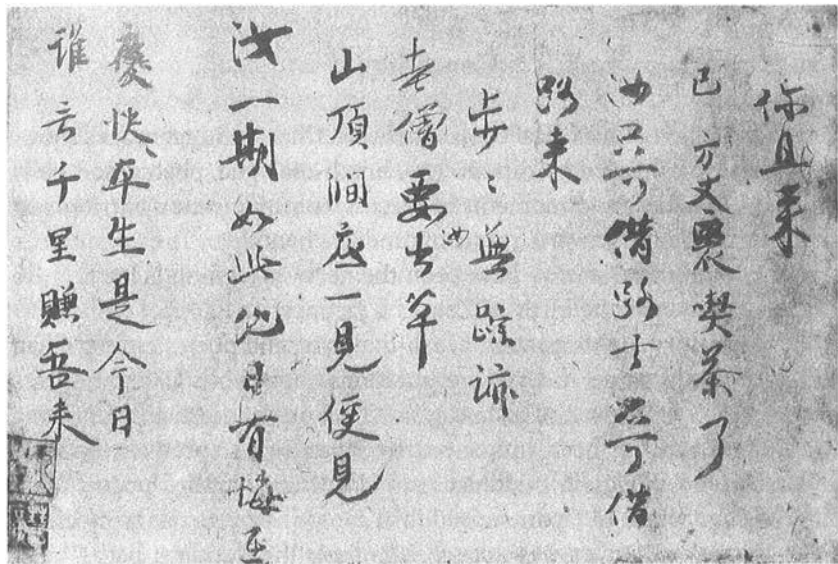 你且來
已方丈裏喫茶了
汝只可借路 可借
路来
歩〻無蹤跡
老僧要汝出草
山頂澗底一見便見
汝一期如此他日有悔
慶快平生是今日
誰言千里賺吾来